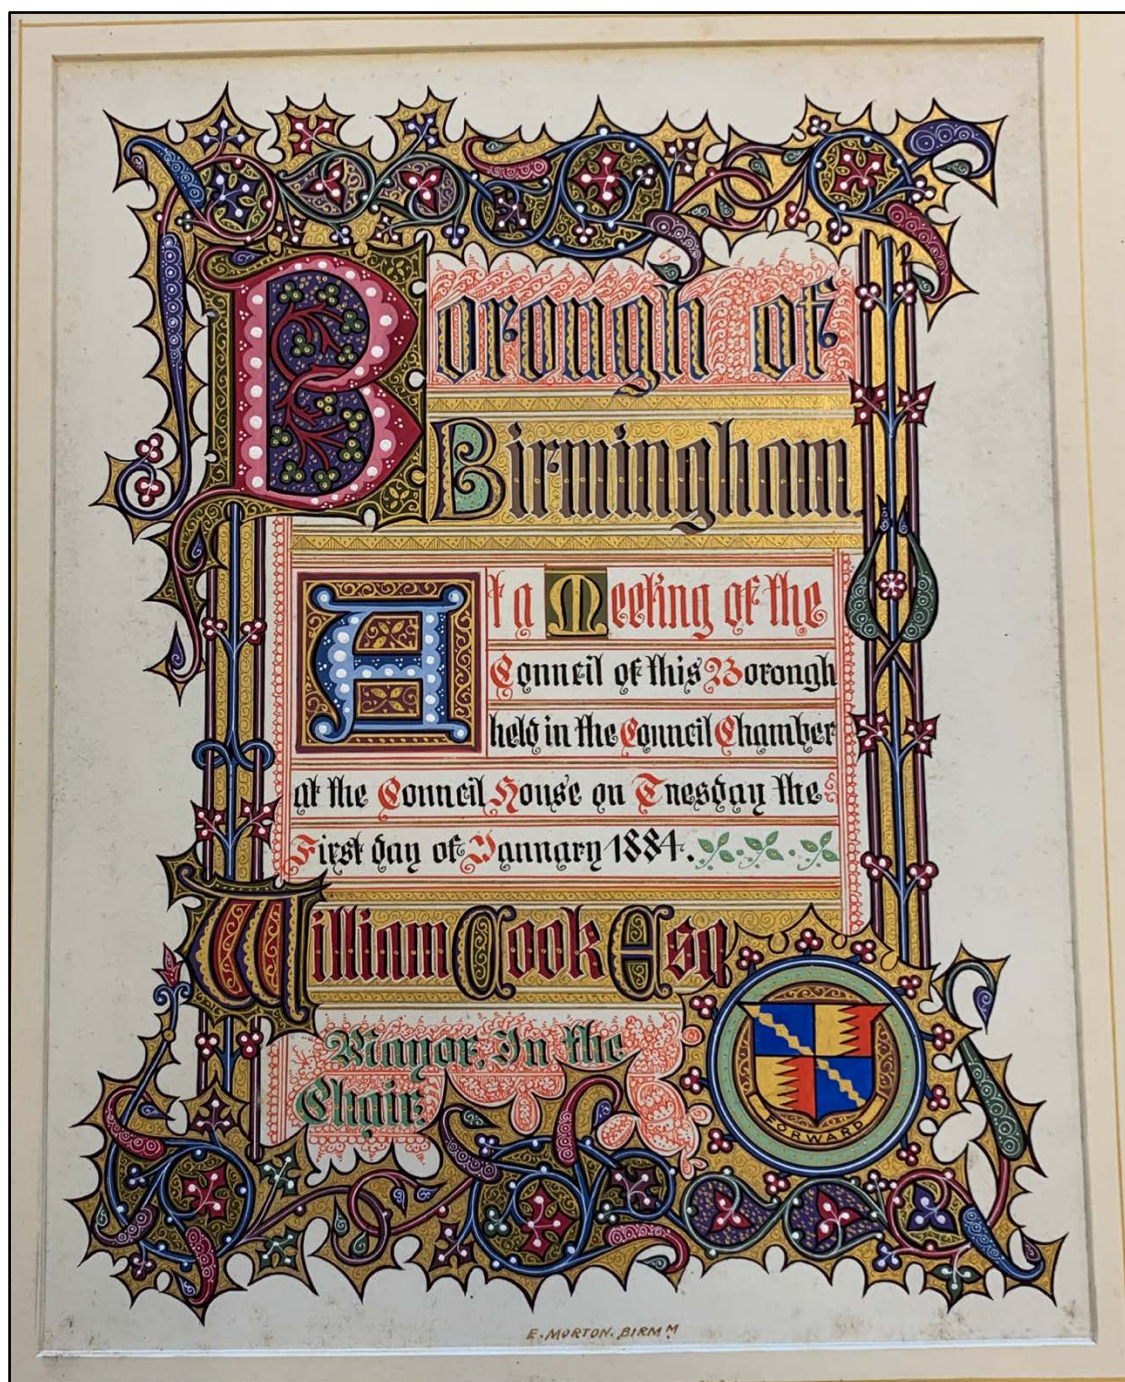 Borough of
Birmingham.
At a Meeting of the
Council of this Borough
held in the Council Chamber
at the Council House on Tuesday the
First day of January 1884.
William Cook Esq
Mayor, In the
Chair.
FORWARD
E. MORTON. BIRMM